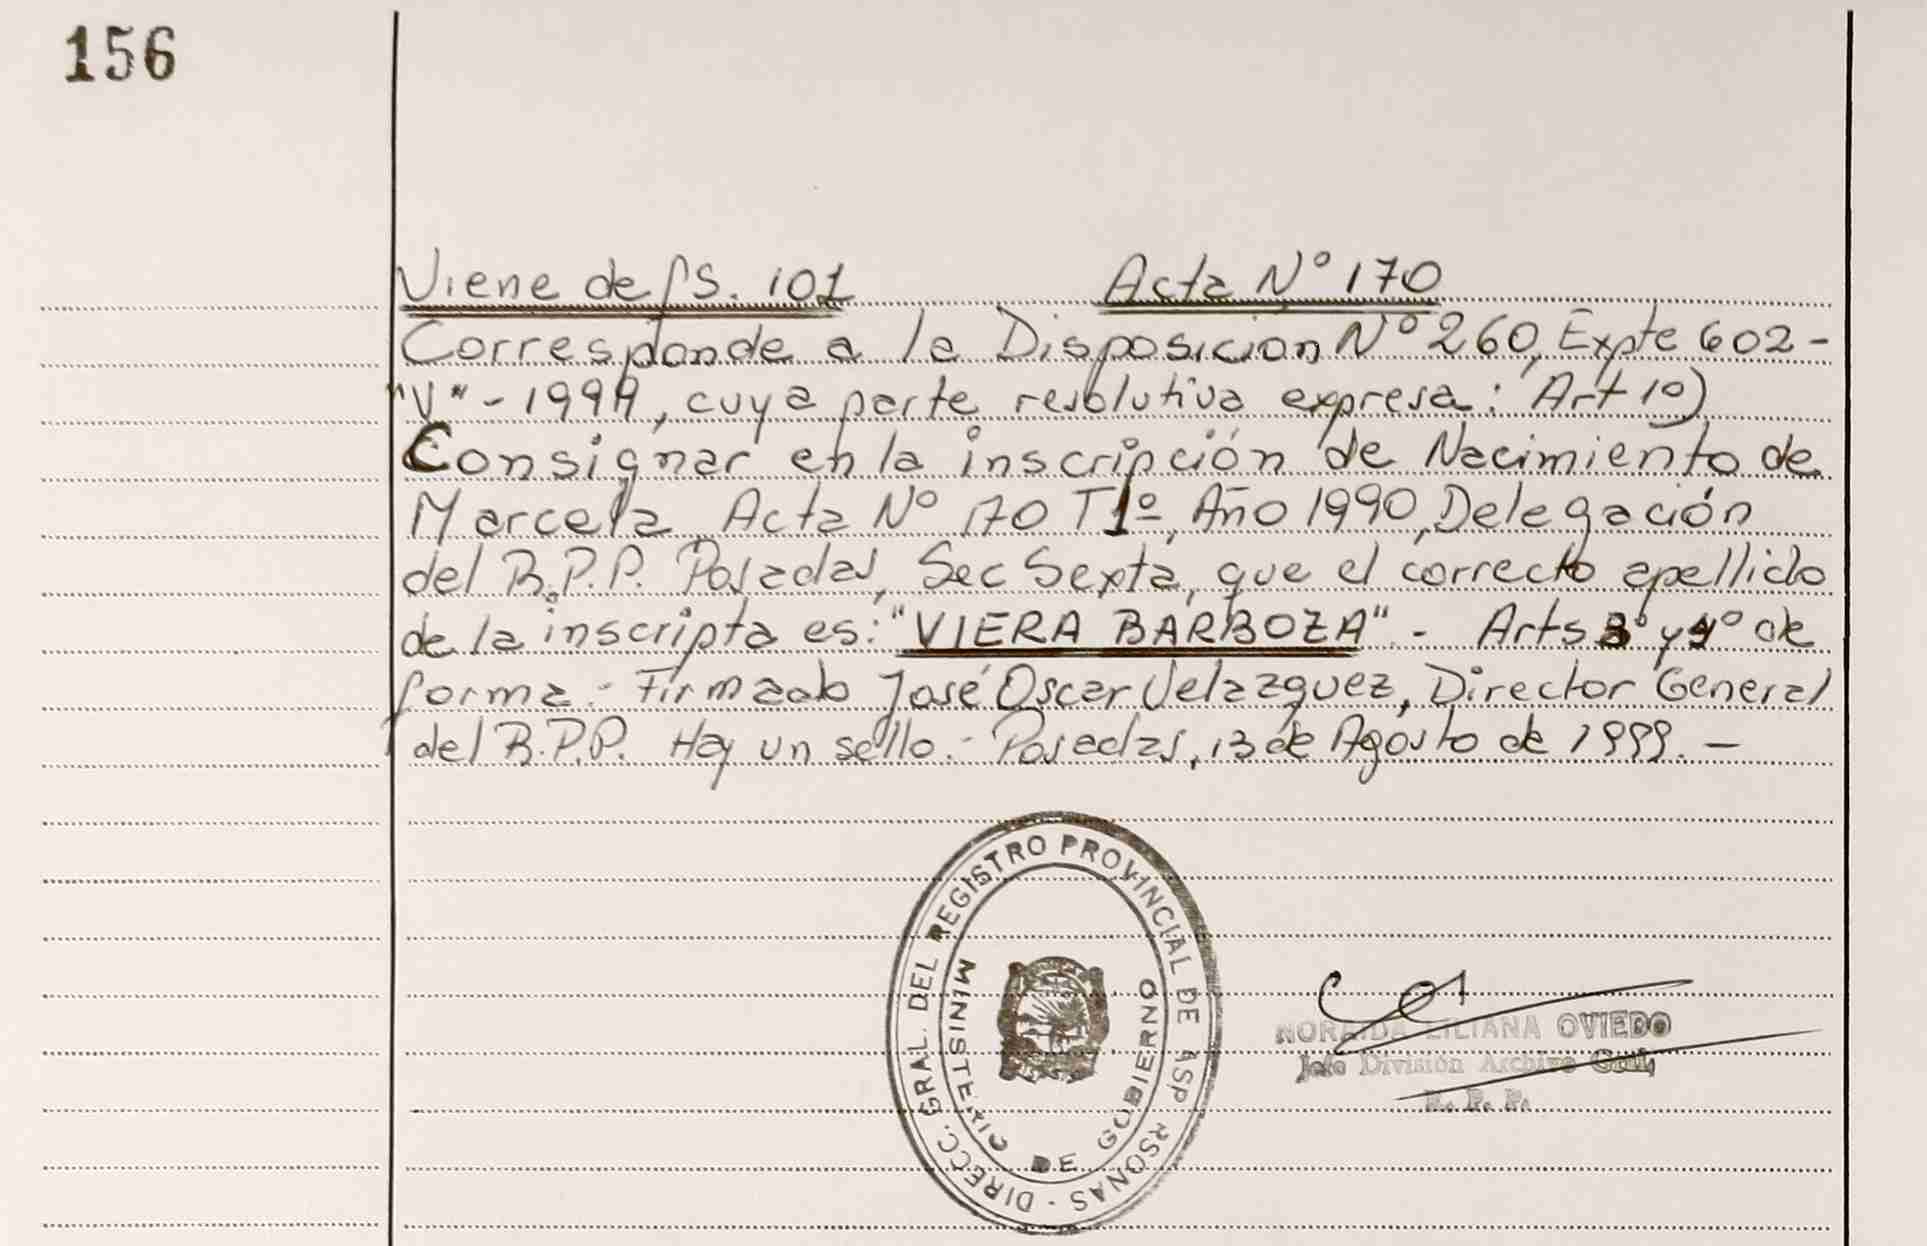 156
Viene de fs. 101 Acta Nº 170
Corresponde a la Disposición Nº 260, Expte 602-
"V" - 1999, cuya parte resolutiva expresa: Art 1º)
Consignar en la inscripción de Nacimiento de
Marcela Acta Nº 170 T1º, Año 1990, Delegación
del R.P.P. Posadas, Sec Sexta, que el correcto apellido
de la inscripta es: "VIERA BARBOZA". - Arts 3º y 4º de
forma.- Firmado José Oscar Velazquez, Director General
del R.P.P. Hay un sello.- Posadas, 13 de Agosto de 1999. -
DIRECC. GRAL. DEL REGISTRO PROVINCIAL DE LAS PERSONAS -
MINISTERIO DE GOBIERNO
NORAIDA LILIANA OVIEDO
Jefe División Archivo Gral.
R. P. P.